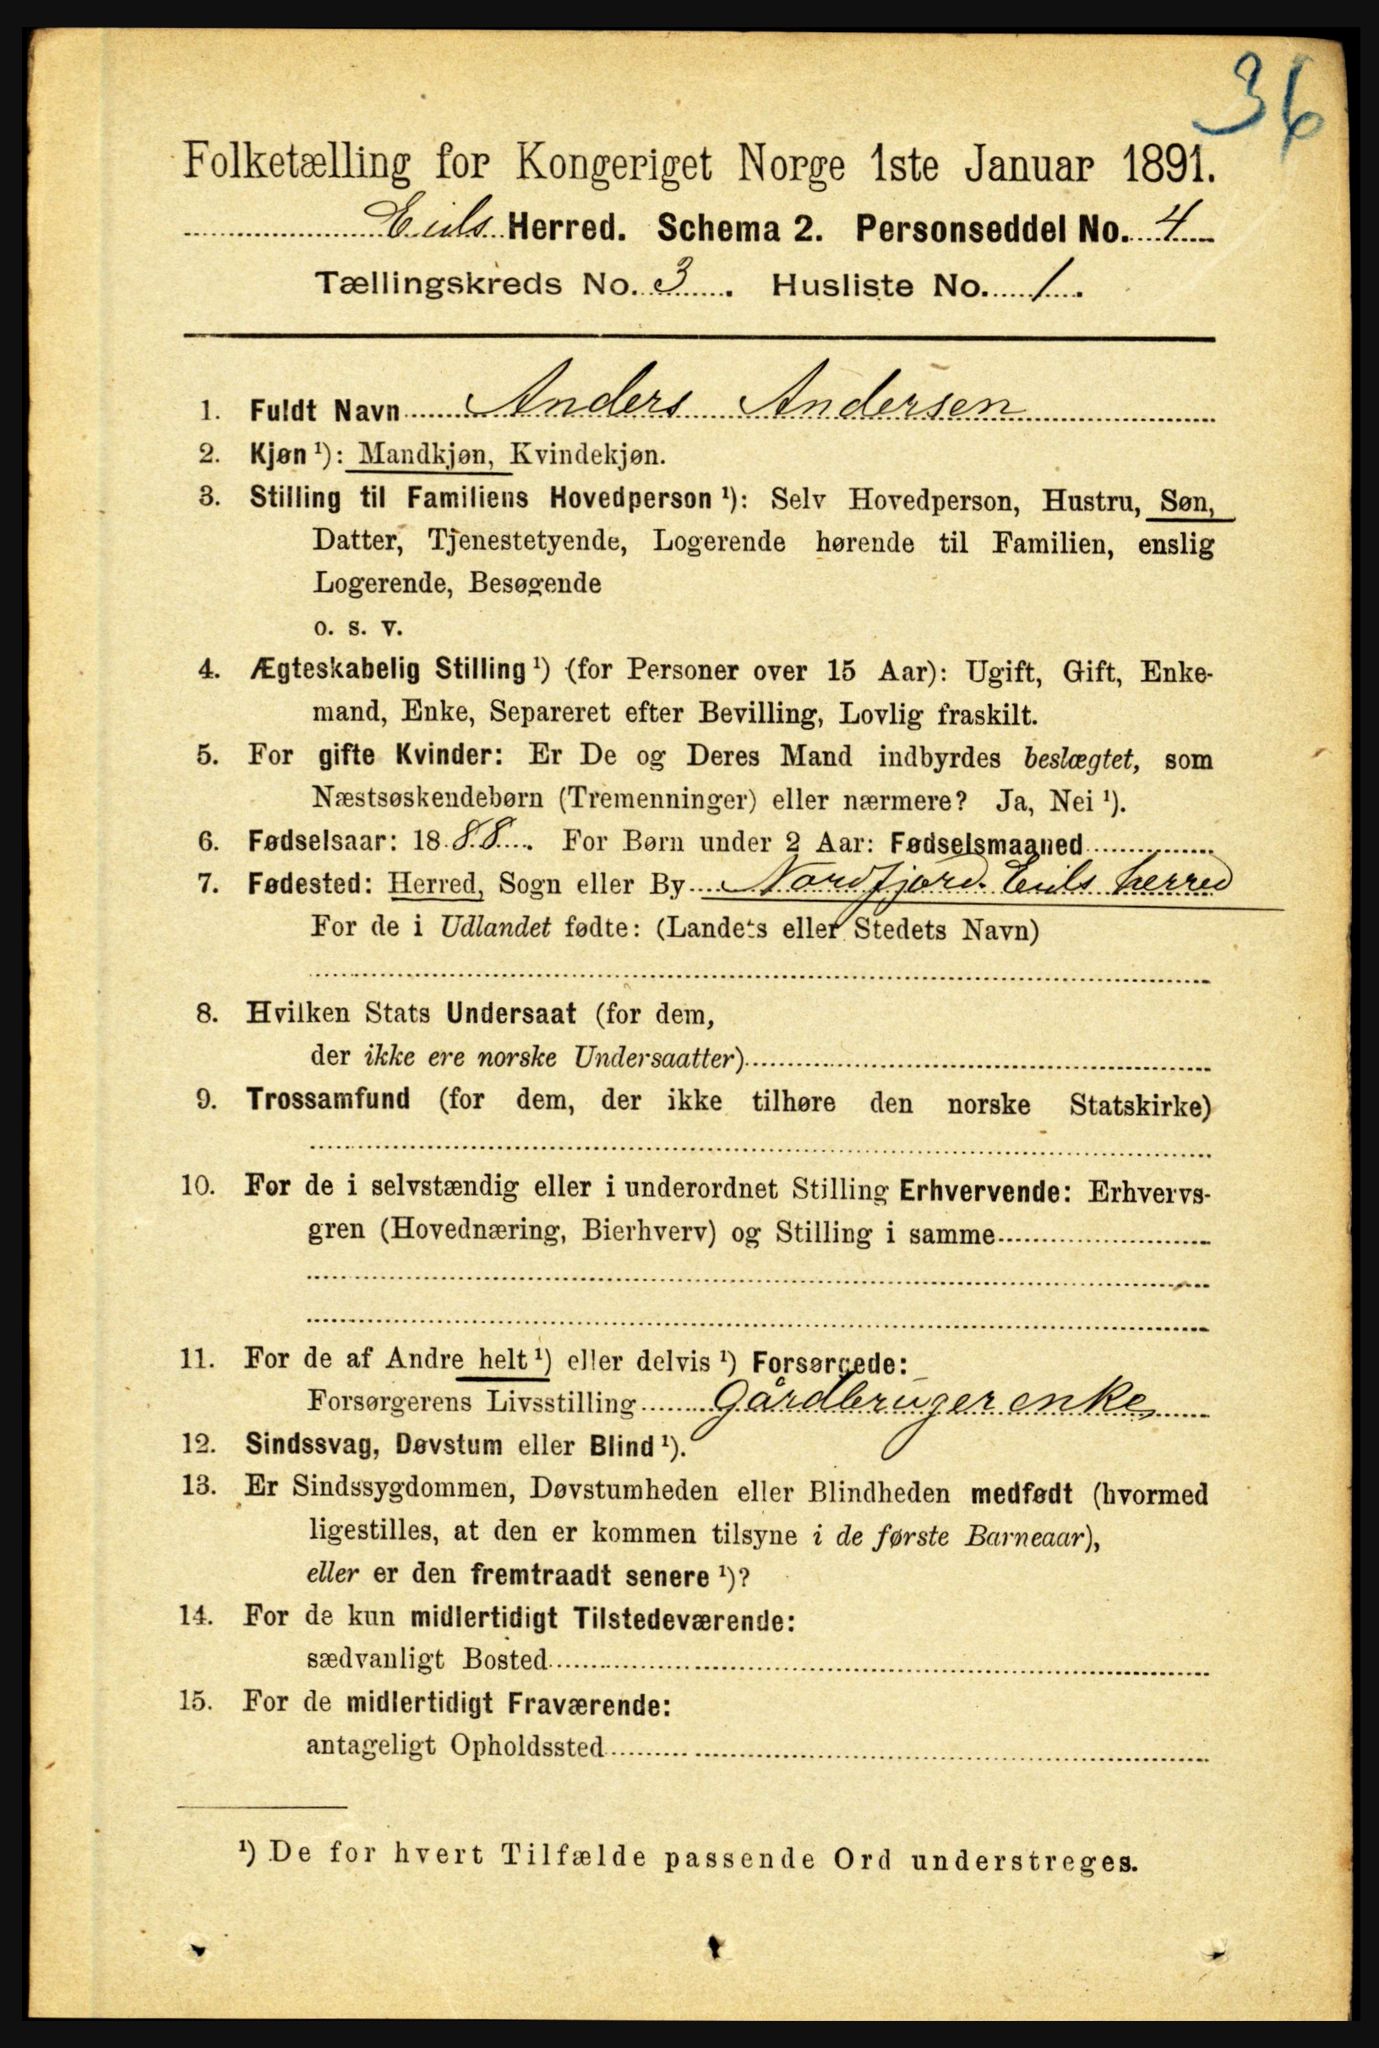 36
Folketælling for Kongeriget Norge 1ste Januar 1891.
Eids Herred. Schema 2. Personseddel No. 4
Tællingskreds No. 3. Husliste No. 1.
1. Fuldt Navn Anders Andersen
2. Kjøn ¹): Mandkjøn, Kvindekjøn.
3. Stilling til Familiens Hovedperson ¹): Selv Hovedperson, Hustru, Søn,
Datter, Tjenestetyende, Logerende hørende til Familien, enslig
Logerende, Besøgende
o. s. v.
4. Ægteskabelig Stilling ¹) (for Personer over 15 Aar): Ugift, Gift, Enke-
mand, Enke, Separeret efter Bevilling, Lovlig fraskilt.
5. For gifte Kvinder: Er De og Deres Mand indbyrdes beslægtet, som
Næstsøskendebørn (Tremenninger) eller nærmere? Ja, Nei ¹).
6. Fødselsaar: 1888. For Børn under 2 Aar: Fødselsmaaned
7. Fødested: Herred, Sogn eller By Nordfjord. Eids herred
For de i Udlandet fødte: (Landets eller Stedets Navn)
8. Hvilken Stats Undersaat (for dem,
der ikke ere norske Undersaatter)
9. Trossamfund (for dem, der ikke tilhøre den norske Statskirke)
10. For de i selvstændig eller i underordnet Stilling Erhvervende: Erhvervs-
gren (Hovednæring, Bierhverv) og Stilling i samme
11. For de af Andre helt ¹) eller delvis ¹) Forsørgede:
Forsørgerens Livsstilling Gårdbruger enke
12. Sindssvag, Døvstum eller Blind ¹).
13. Er Sindssygdommen, Døvstumheden eller Blindheden medfødt (hvormed
ligestilles, at den er kommen tilsyne i de første Barneaar),
eller er den fremtraadt senere ¹)?
14. For de kun midlertidigt Tilstedeværende:
sædvanligt Bosted
15. For de midlertidigt Fraværende:
antageligt Opholdssted
¹) De for hvert Tilfælde passende Ord understreges.